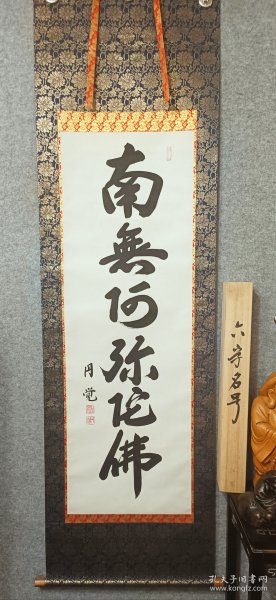 南無阿弥陀佛
円覚
六字名号
孔夫子旧书网
www.kongfz.com